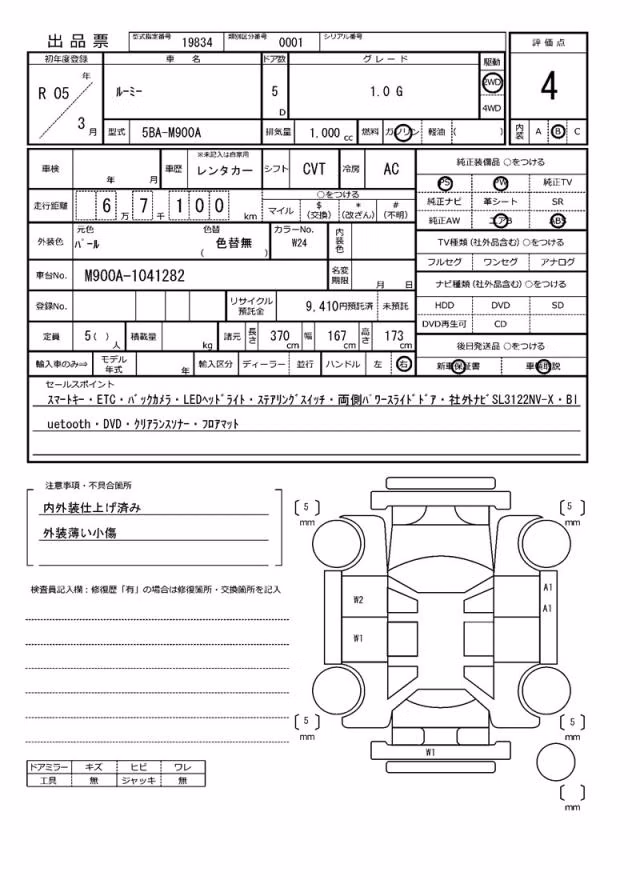 出品票 型式指定番号 19834 類別区分番号 0001 シリアル番号
初年度登録 車名 ドア数 グレード 駆動 評価点
R 05 年 3 月 ルーミー 5 D 1.0 G 2WD 4WD 4
型式 5BA-M900A 排気量 1.000 cc 燃料 ガソリン 軽油 ( ) 内装 A B C
車検 年 月 車歴 ※未記入は自家用 レンタカー シフト CVT 冷房 AC 純正装備品 ○をつける
PS PW 純正TV
走行距離 6 万 7 千 1 0 0 km ○をつける 純正ナビ 革シート SR
マイル $ (交換) * (改ざん) # (不明) 純正AW エアB ABS
外装色 元色 パール 色替 ( 色替無 ) カラーNo. W24 内装色 TV種類 (社外品含む) ○をつける
フルセグ ワンセグ アナログ
車台No. M900A-1041282 名変期限 月 日 ナビ種類 (社外品含む) ○をつける
登録No. リサイクル預託金 9,410円預託済 未預託 HDD DVD SD
DVD再生可 CD
定員 5( ) 人 積載量 kg 諸元 長さ 370 cm 幅 167 cm 高さ 173 cm 後日発送品 ○をつける
輸入車のみ⇒ モデル年式 年 輸入区分 ディーラー 並行 ハンドル 左 右 新車保証書 車輌取説
セールスポイント
スマートキー・ETC・バックカメラ・LEDヘッドライト・ステアリングスイッチ・両側パワースライドドア・社外ナビSL3122NV-X・Bl
uetooth・DVD・クリアランスソナー・フロアマット
注意事項・不具合箇所
内外装仕上げ済み
外装薄い小傷
検査員記入欄：修復歴「有」の場合は修復箇所・交換箇所を記入
[ 5 ] mm [ 5 ] mm
W2 A1
A1
W1
[ 5 ] mm [ 5 ] mm
W1
ドアミラー キズ ヒビ ワレ
工具 無 ジャッキ 無
[ ] mm